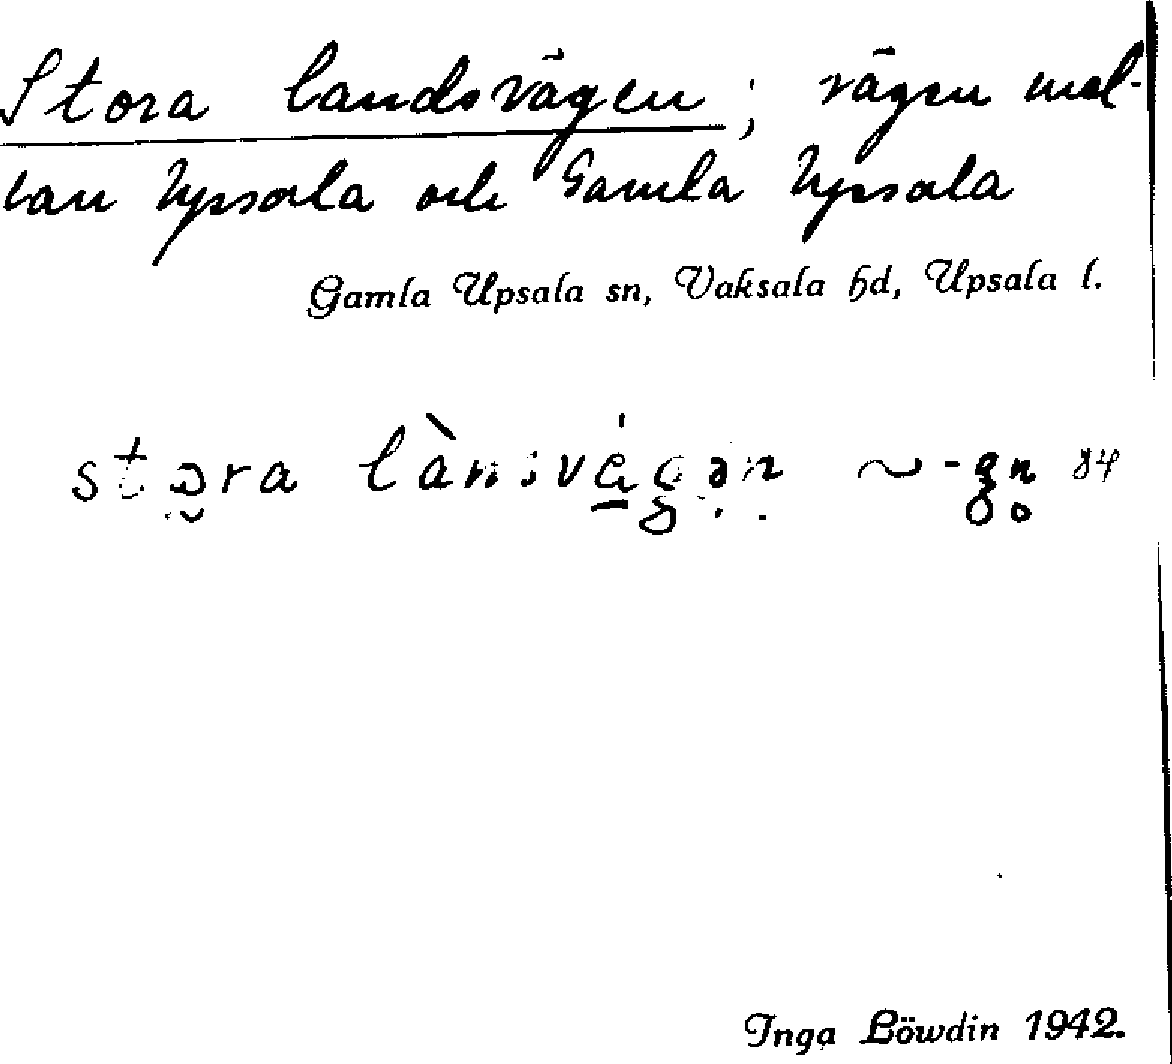 Stora landsvägen; vägen mel-
lan Upsala och Gamla Upsala
Gamla Upsala sn, Vaksala hd, Upsala l.
stora lànsvägən ~ -gn 84
Inga Löwdin 1942.